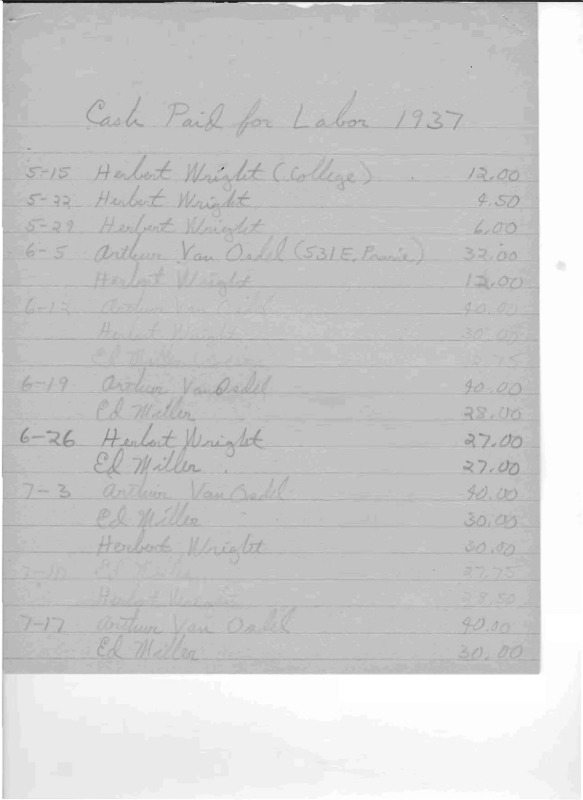 Cash Paid for Labor 1937
5-15 Herbert Wright (College) 12.00
5-22 Herbert Wright 4.50
5-29 Herbert Wright 6.00
6-5 Arthur Van Osdel (531 E. Prairie) 32.00
Herbert Wright 12.00
6-12 Arthur Van Osdel 40.00
Herbert Wright 30.00
Ed Miller
6-19 Arthur Van Osdel 40.00
Ed Miller 28.00
6-26 Herbert Wright 27.00
Ed Miller 27.00
7-3 Arthur Van Osdel 40.00
Ed Miller 30.00
Herbert Wright 30.00
7-10 Ed Miller 27.75
Herbert Wright 28.50
7-17 Arthur Van Osdel 40.00
Ed Miller 30.00